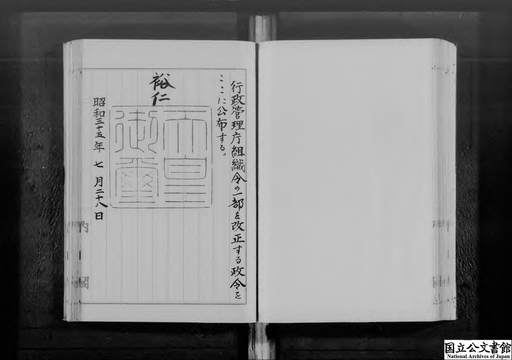 行政管理庁組織令の一部を改正する政令を
ここに公布する。
裕仁
天皇御璽
昭和三十五年七月二十八日
内閣
国立公文書館
National Archives of Japan